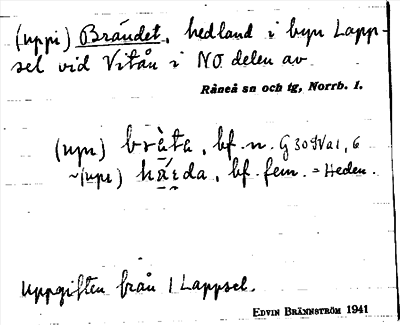 (uppi) Brändet, hedland i byn Lapp-
sel vid Vitån i NO delen av
Råneå sn och tg, Norrb. l.
(upi) bräta, bf. n. G 30 9Va1, 6
~(upi) hāɛda, bf. fem. = Heden.
Uppgiften från 1 Lappsel.
EDVIN BRÄNNSTRÖM 1941